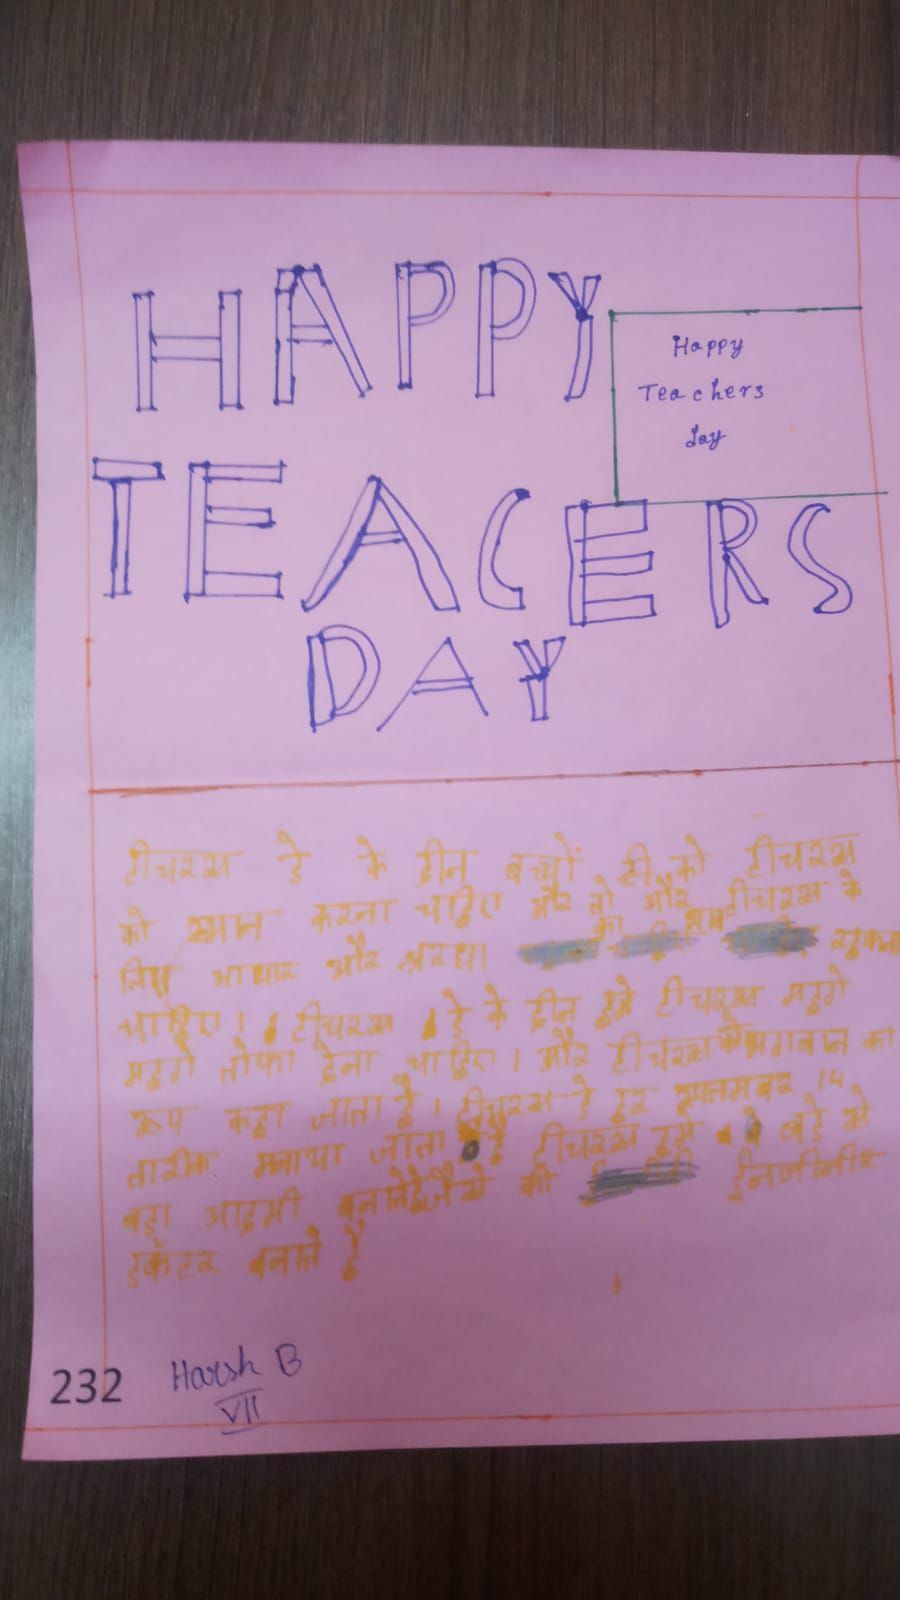 HAPPY
Happy
Teachers
day
TEACERS
DAY
टीचरस डे के दीन बच्चों टी को टीचरस
को स्मान करना चाहिए और तो और टीचरस के
लिए आधार और श्ररधा का भाव रखना
चाहिए। टीचरस डे के दीन हमे टीचरस महगे
महगे तोफा देना चाहिए। और टीचरस को भगवान का
रूप कहा जाता है। टीचरस डे हर स्पतमबर 14
तारीक मनाया जाता है टीचरस हमे बडे से
बड़ा आदमी बनाते है जैसे की ईनजीनीर
डॅकटर बनाते है
232 Harsh B
VII